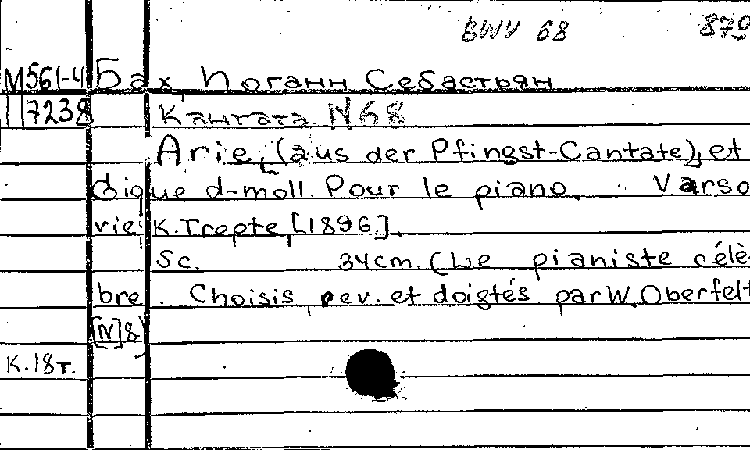 BWV 68 879
М561-4 Бах, Иоганн Себастьян
17238 Кантата N68
Arie, (aus der Pfingst-Cantate), et
gique d-moll. Pour le piano. Varso
vie, K. Trepte, [1896].
Sc. 34cm. (Le pianiste célè-
bre. Choisis, rev. et doigtés par W. Oberfelt
[N]8)
К.18т.